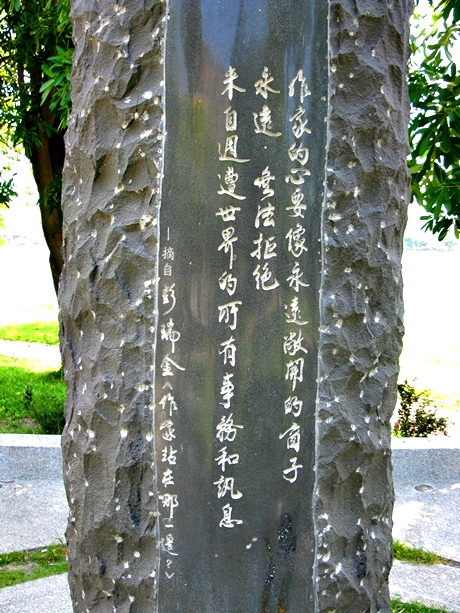 作家的心要像永遠敞開的窗子
永遠·無法拒絕
來自週遭世界的所有事務和訊息
—摘自彭瑞金〈作家站在那一邊?〉